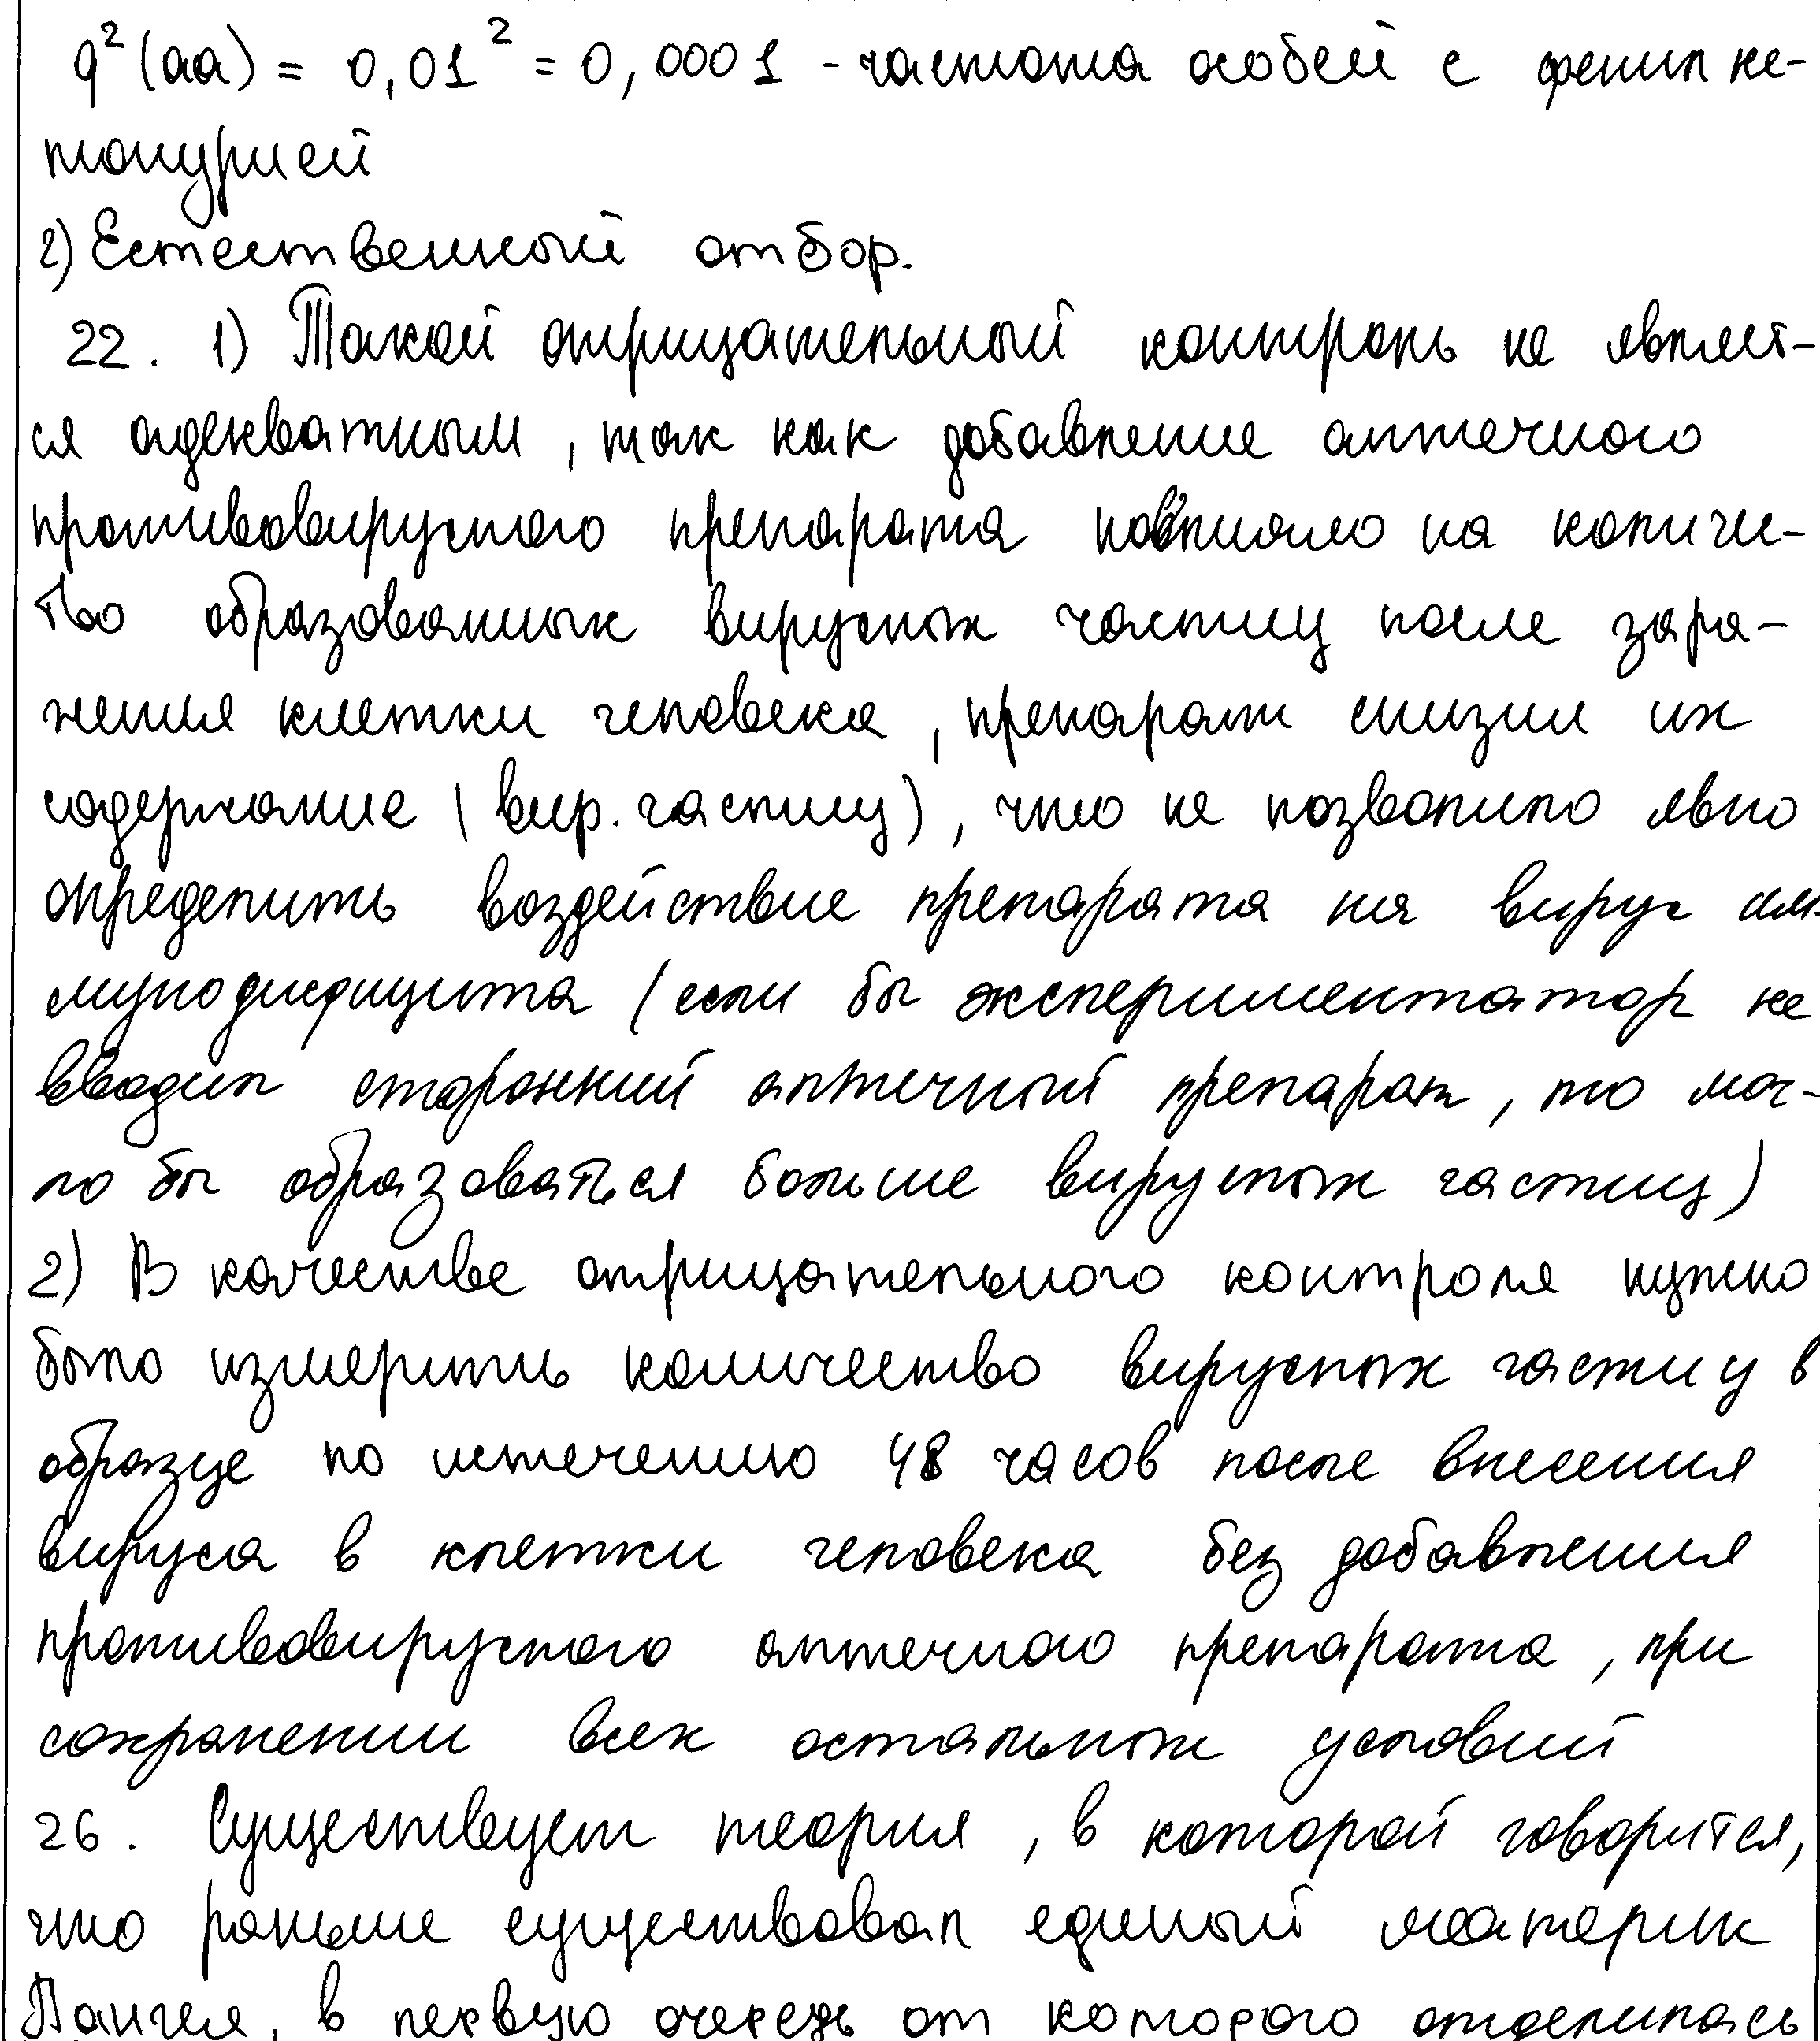 q²(aa) = 0,01² = 0,0001 - частота особей с фенилке-
тонурией
2) Естественный отбор.
22. 1) Такой отрицательный контроль не являет-
ся адекватным, так как добавление аптечного
противовирусного препарата повлияло на количе-
тво образованных вирусных частиц после зара-
жения клетки человека, препарат снизил их
содержание (вир. частиц), что не позволило явно
определить воздействие препарата на вирус им-
мунодифицита (если бы экспериментатор не
вводил сторонний аптечный препарат, то мог-
ло бы образоваться больше вирусных частиц)
2) В качестве отрицательного контроля нужно
было измерить количество вирусных частиц в
образце по истечению 48 часов после внесения
вируса в клетки человека без добавления
противовирусного аптечного препарата, при
сохранении всех остальных условий
26. Существует теория, в которой говорится,
что раньше существовал единый материк
Пангея, в первую очередь от которого отделилась